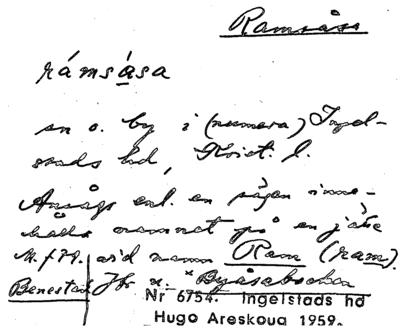 Ramsåsa
rámsåsa
en o. by i (numera) Ingel-
stads hd, Krist. l.
Ansågs enl. en sägen inne-
hålla namnet på en jätte
vid namn Ram (ram).
Benestad Jfr Byåsabacken
Nr 6754. Ingelstads hd
Hugo Areskoug 1959.